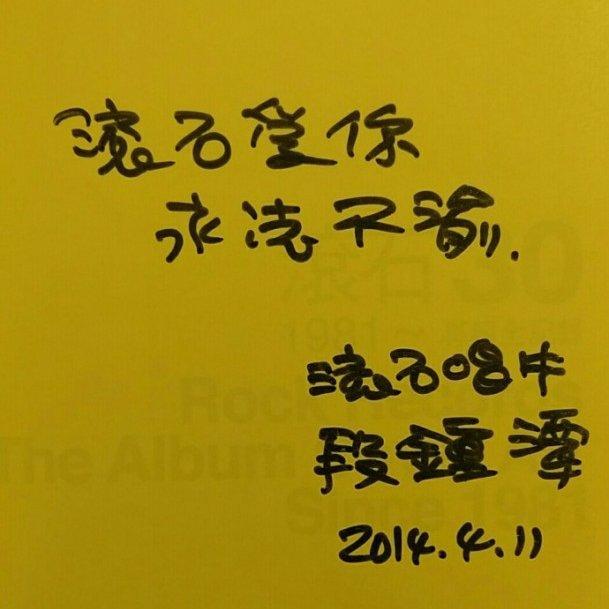 滾石愛你
永 不渝.
滾石 30
1981
滾石唱片
Rock
段鍾潭
The Album
Since 1981
2014.4.11